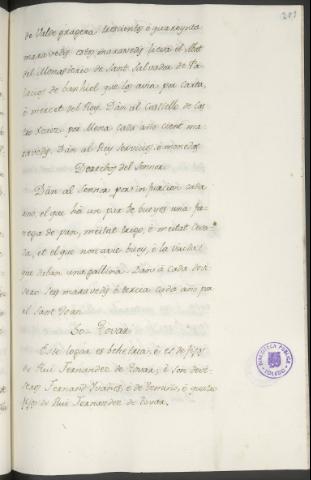 201
de Valde pragera trescientos, é quarenta
maravedis estos maravedis lieva el Abat
del Monasterio de Sant Salvador de Pa-
lacios de benhiel que los aina por carta,
é mercet del Rey. Dan al Castiello de Cas-
tro Xeriz por Mena cada año cient ma-
ravedis. Dan al Rey servicios, é monedas
Derechos del Sennor
Dan al Sennor por infurcion cada
ano, el que há un par de bueyes una fa-
nega de pan, meitat trigo, é meitat ceva-
da, et el que non ave buey, é la viuda
que deban una gallina. Dan á cada devi-
sero seis maravedis é tercia cada año por
el Sant Joan
Tovar
Este logar es behetria, é es de fijos
de Rui Fernandez de Tovar, é son devi-
seros Fernand Ivañes, é de é quatro
fijos de Rui Fernandez de Tovar.
BIBLIOTECA PUBLICA
TOLEDO